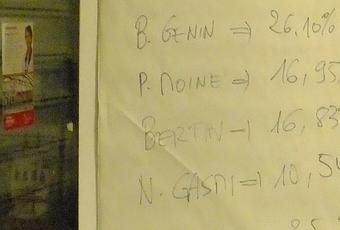 B. GENIN => 26,10%
P. MOINE => 16,95
BERTIN -| 16,83
N. GASMI => 10,54